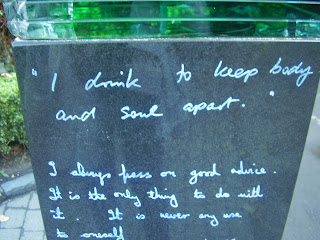 "I drink to keep body
and soul apart."
I always pass on good advice.
It is the only thing to do with
it. It is never any use
to oneself